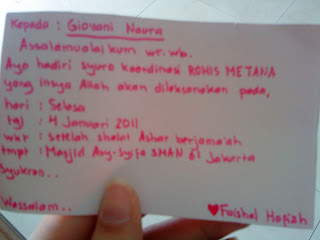 Kepada : Giovani Naura
Assalamualaikum wr.wb.
Ayo hadiri syuro koordinasi ROHIS METANA
yang insya Allah akan dilaksanakan pada,
hari : Selasa
tgl : 4 Januari 2011
wkt : setelah shalat Ashar berjama'ah
tmpt : Masjid Asy-Syifa SMAN 61 Jakarta
Syukron..
Wassalam..
Faishal Hafizh